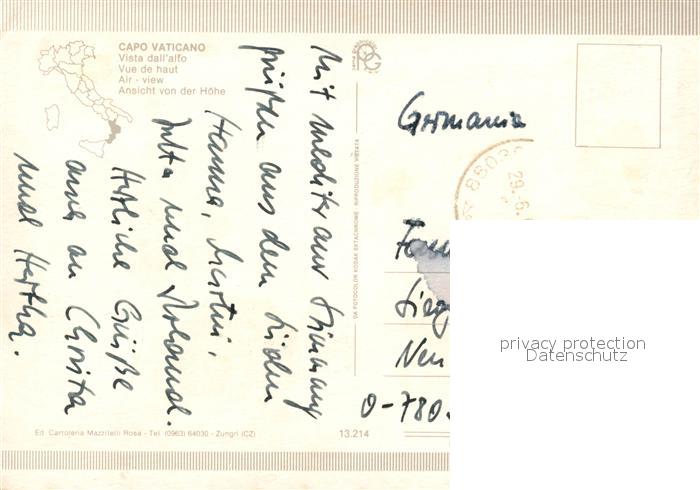 CAPO VATICANO
Vista dall'alto
Vue de haut
Air - view
Ansicht von der Höhe
Mit Stimmung
grüßen aus dem Süden
Hanna, Martin,
Jutta und Roland.
Herzliche Grüße
auch an Christa
und Hertha.
DA FOTOCOLOR KODAK EKTACHROME - RIPRODUZIONE VIETATA
Germania
88038
29.6.
Neu
O-780
privacy protection
Datenschutz
Ed. Cartoleria Mazzitelli Rosa - Tel. (0963) 64030 - Zungri (CZ)
13.214